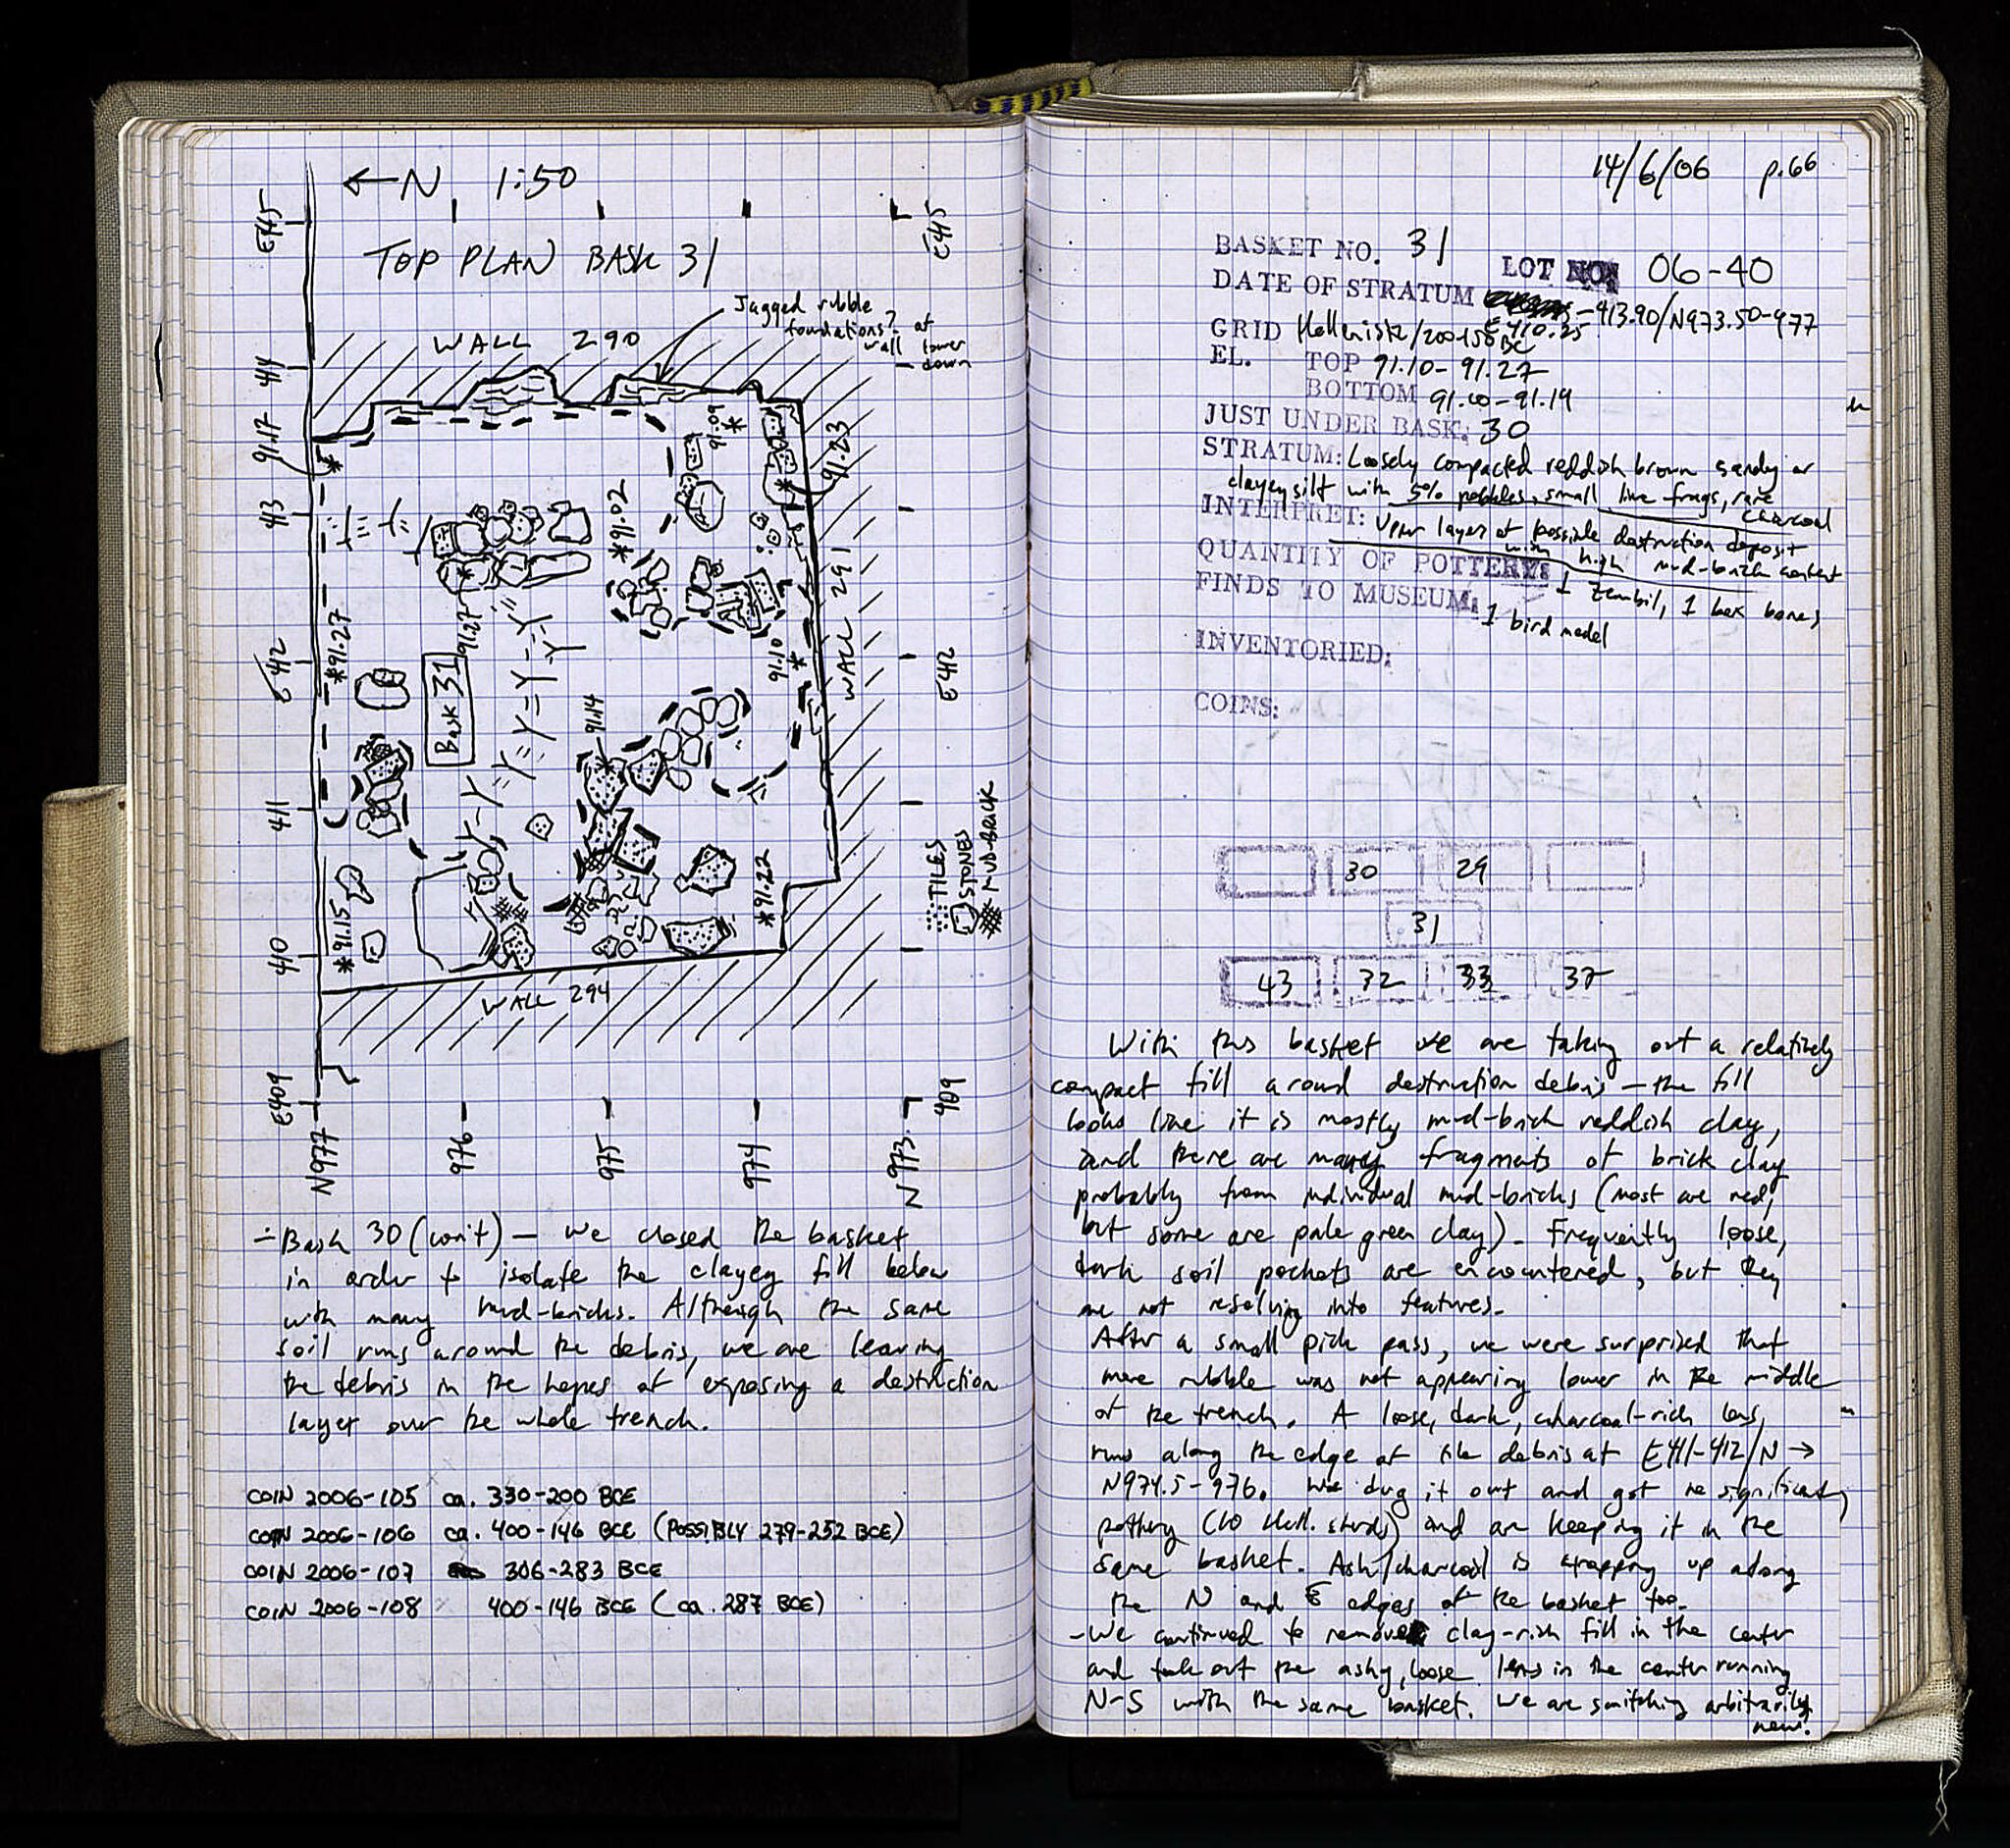 ←N 1:50
E415
E415
TOP PLAN BASK 31
Jagged rubble
foundations? at
wall lower
down
WALL 290
414
91.17
91.09
91.23
413
91.02
WALL 291
91.27
91.27
E412
E412
Bask 31
91.10
91.14
411
TILES
STONES
MUD-BRICK
91.22
91.15
410
WALL 294
E409
409
N977
976
975
974
N973
÷ Bask 30 (con't) — we closed the basket
in order to isolate the clayey fill below
with many mud-bricks. Although the same
soil runs around the debris, we are leaving
the debris in the hopes of exposing a destruction
layer over the whole trench.
COIN 2006-105 ca. 330-200 BCE
COIN 2006-106 ca. 400-146 BCE (POSSIBLY 279-252 BCE)
COIN 2006-107 306-283 BCE
COIN 2006-108 400-146 BCE (ca. 287 BCE)
14/6/06 p.66
BASKET NO. 31 LOT NO. 06-40
DATE OF STRATUM -413.90/N973.50-977
GRID Hellenistic/200-150 BC E410.25
EL. TOP 91.10-91.27
BOTTOM 91.00-91.19
JUST UNDER BASK: 30
STRATUM: Loosely compacted reddish brown sandy or
clayey silt with 5% pebbles, small lime frags, rare
charcoal
INTERPRET: Upper layer of possible destruction deposit
with high mud-brick content
QUANTITY OF POTTERY: 1 zembil, 1 box bones
FINDS TO MUSEUM: 1 bird medel
INVENTORIED:
COINS:
30 29
31
43 32 33 37
With this basket we are taking out a relatively
compact fill around destruction debris — the fill
looks like it is mostly mud-brick reddish clay,
and there are many fragments of brick clay
probably from individual mud-bricks (most are red,
but some are pale green clay). Frequently loose,
dark soil pockets are encountered, but they
are not resolving into features.
After a small pick pass, we were surprized that
more rubble was not appearing lower in the middle
of the trench. A loose, dark, charcoal-rich lens,
runs along the edge of tile debris at E411-412/N →
N974.5-976. We dug it out and got no significant
pottery (10 Hell. sherds) and are keeping it in the
same basket. Ash/charcoal is wrapping up along
the N and E edges of the basket too.
- We continued to remove clay-rich fill in the center
and took out the ashy, loose lens in the center running
N-S with the same basket. We are switching arbitrarily
now.